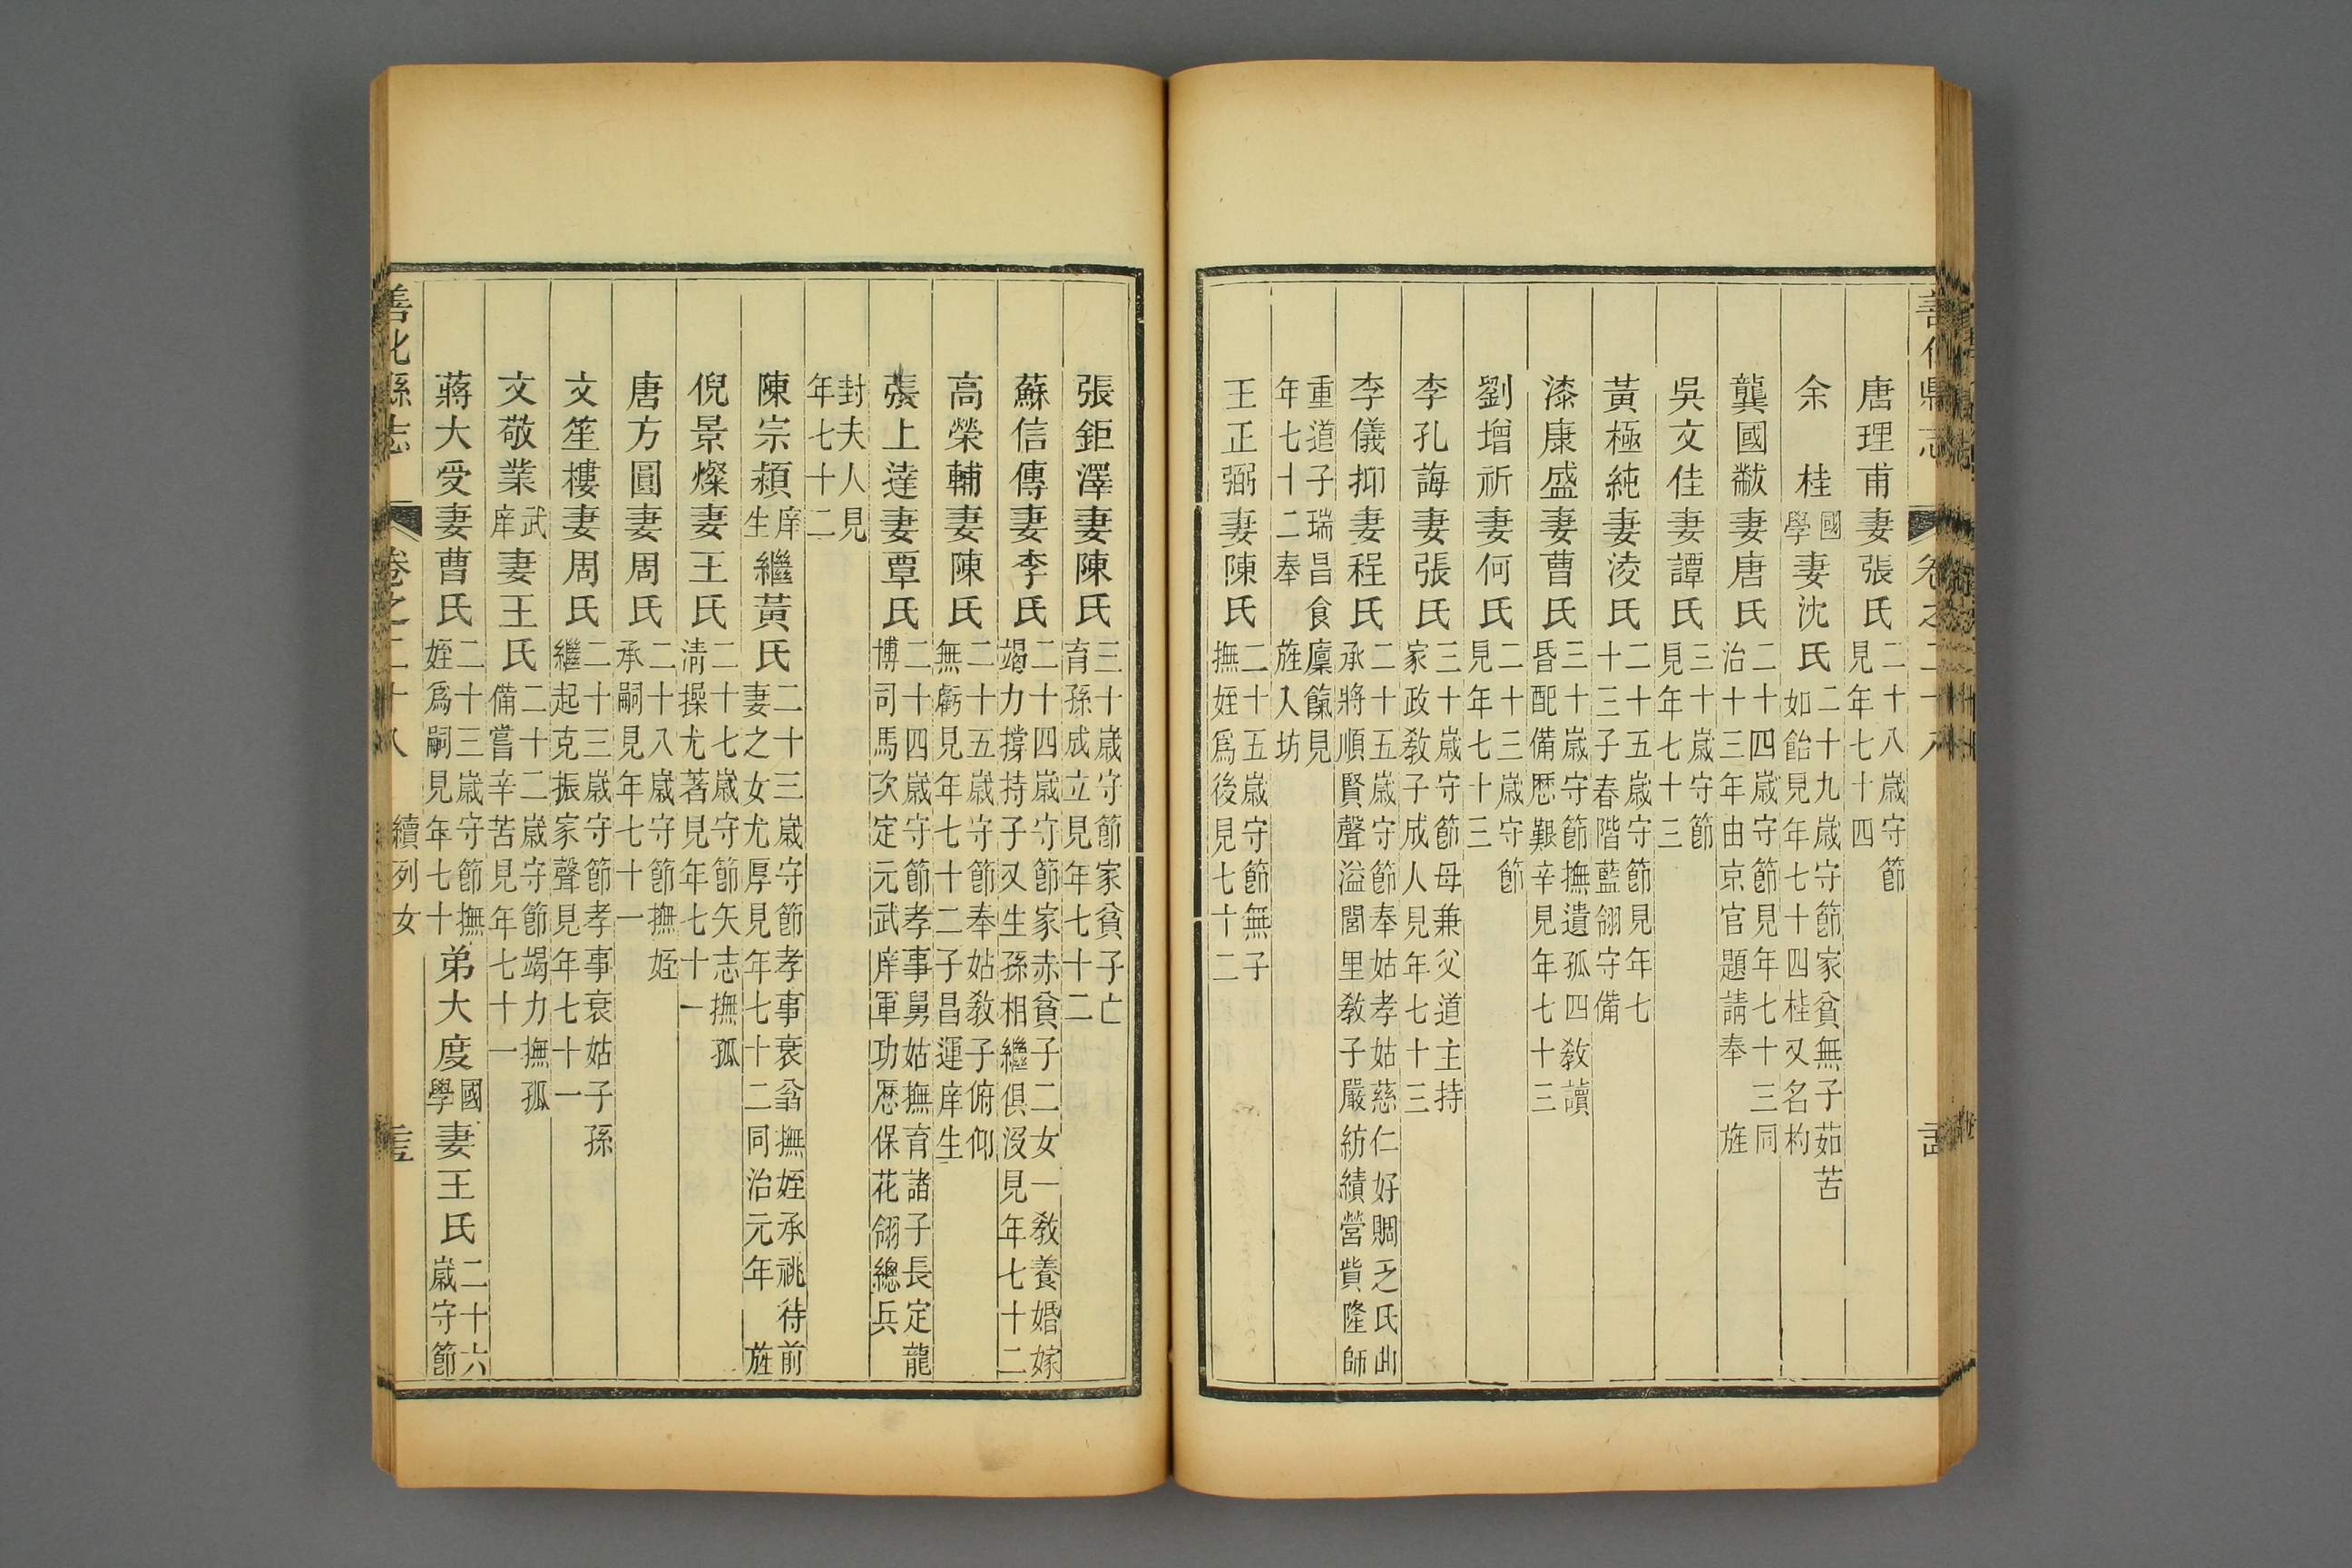 善化縣志 卷之二十八
唐理甫妻張氏二十八歲守節見年七十四
余 桂國學妻沈氏二十九歲守節家貧無子茹苦如飴見年七十四桂又名构
龔國黻妻唐氏二十四歲守節見年七十三同治十三年由京官題請奉 旌
吳文佳妻譚氏三十歲守節見年七十三
黃極純妻淩氏二十五歲守節見年七十三子春階藍翎守備
漆康盛妻曹氏三十歲守節撫遺孤四教讀昏配備歷艱辛見年七十三
劉增祈妻何氏二十三歲守節見年七十三
李孔誨妻張氏三十歲守節母兼父道主持家政教子成人見年七十三
李儀抑妻程氏二十五歲守節奉姑孝姑慈仁好賙乏氏曲承將順賢聲溢閭里教子嚴紡績營貲隆師
重道子瑞昌食廩餼見年七十二奉 旌入坊
王正弼妻陳氏二十五歲守節無子撫姪爲後見七十二
張鉅澤妻陳氏三十歲守節家貧子亡育孫成立見年七十二
蘇信傳妻李氏二十四歲守節家赤貧子二女一教養婚嫁竭力撐持子又生孫相繼俱沒見年七十二
高榮輔妻陳氏二十五歲守節奉姑教子俯仰無虧見年七十二子昌運庠生
張上達妻覃氏二十四歲守節孝事舅姑撫育諸子長定龍博司馬次定元武庠軍功歷保花翎總兵
封夫人見年七十二
陳宗頴庠生繼黃氏二十三歲守節孝事衰翁撫姪承祧待前妻之女尤厚見年七十二同治元年 旌
倪景燦妻王氏二十七歲守節矢志撫孤淸操尤著見年七十一
唐方圓妻周氏二十八歲守節撫姪承嗣見年七十一
文笙樓妻周氏二十三歲守節孝事衰姑子孫繼起克振家聲見年七十一
文敬業武庠妻王氏二十二歲守節竭力撫孤備嘗辛苦見年七十一
蔣大受妻曹氏二十三歲守節撫姪爲嗣見年七十 弟大度國學妻王氏二十六歲守節
善化縣志 卷之二十八 續列女